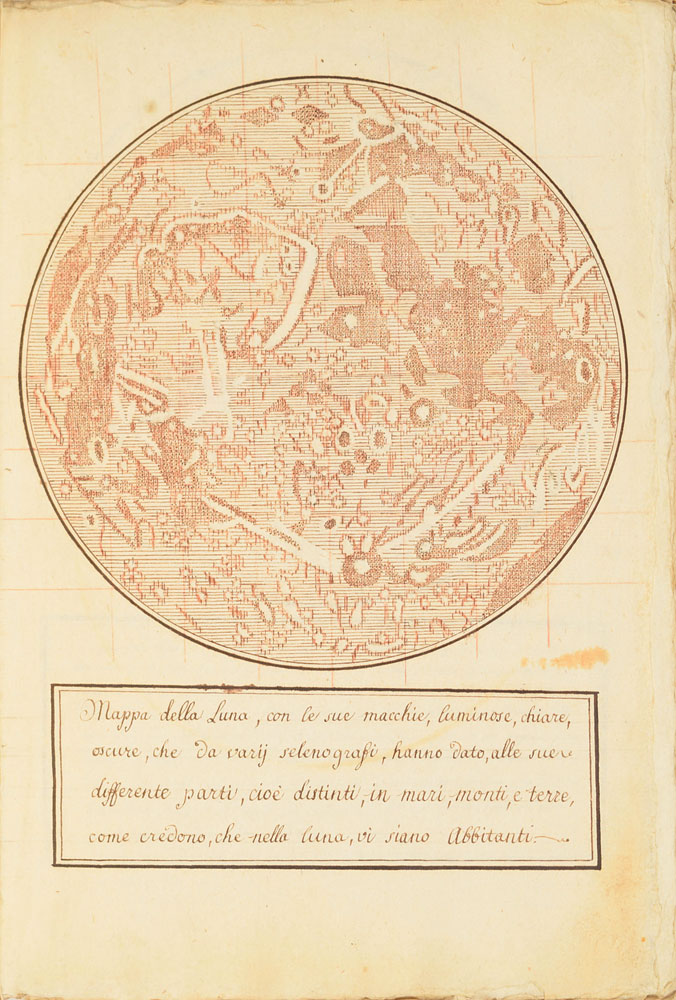 Mappa della Luna, con le sue macchie, luminose, chiare,
oscure, che da varij selenografi, hanno, dato, alle sue
differente parti, cioè distinti, in mari, monti, e terre,
come credono, che nella luna, vi siano Abbitanti.